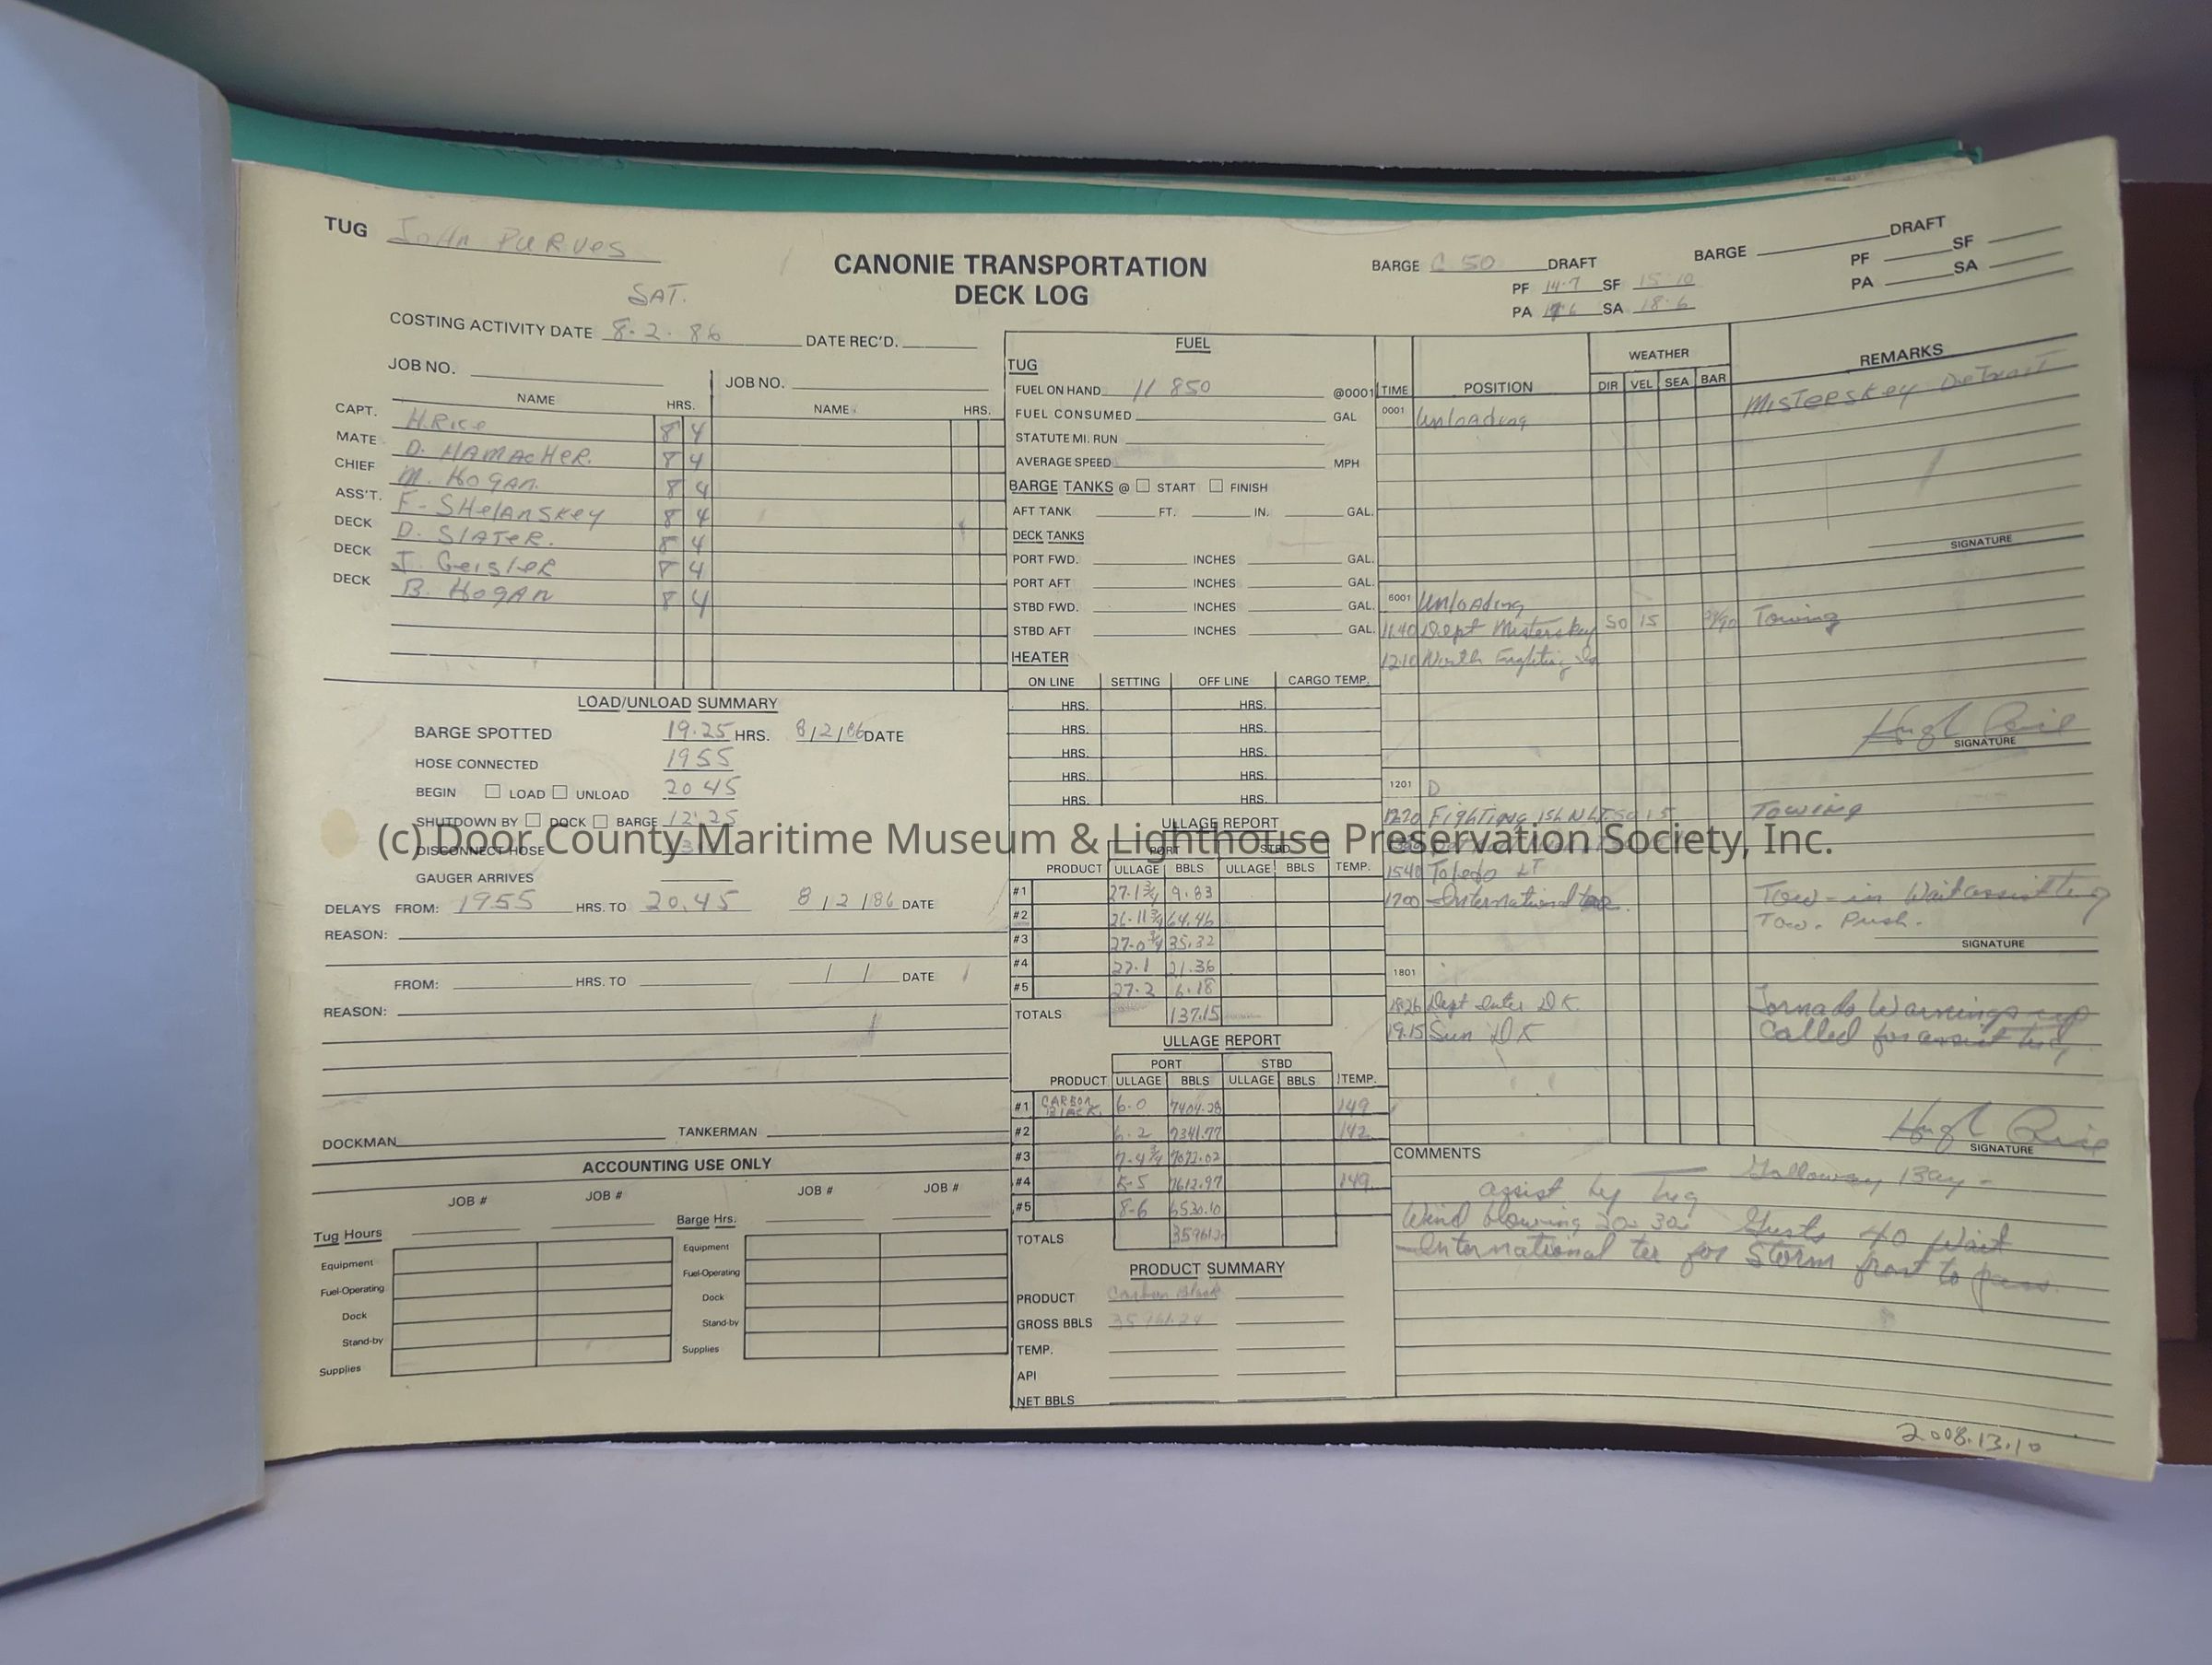 TUG John Purves
CANONIE TRANSPORTATION
DECK LOG
BARGE C 50 DRAFT
PF 14-7 SF 15-10
PA SA 18-6
BARGE DRAFT
PF SF
PA SA
SAT.
COSTING ACTIVITY DATE 8-2-86 DATE REC'D.
JOB NO. JOB NO.
NAME HRS. NAME HRS.
CAPT. H. Rice 8 4
MATE D. HAMACHER. 8 4
CHIEF M. HOGAN. 8 4
ASS'T. F. SHelanskey 8 4
DECK D. SLATER. 8 4
DECK J. Geisler 8 4
DECK B. HOGAN 8 4
LOAD/UNLOAD SUMMARY
BARGE SPOTTED 19.25 HRS. 8/2/86 DATE
HOSE CONNECTED 1955
BEGIN LOAD UNLOAD 20 45
SHUTDOWN BY DOCK BARGE 12:25
DISCONNECT HOSE
GAUGER ARRIVES
DELAYS FROM: 1955 HRS. TO 20.45 8/2/86 DATE
REASON:
FROM: HRS. TO / / DATE
REASON:
DOCKMAN TANKERMAN
ACCOUNTING USE ONLY
JOB # JOB # JOB # JOB #
Tug Hours Barge Hrs.
Equipment Equipment
Fuel-Operating Fuel-Operating
Dock Dock
Stand-by Stand-by
Supplies Supplies
FUEL
TUG
FUEL ON HAND 11 850 @0001
FUEL CONSUMED GAL
STATUTE MI. RUN
AVERAGE SPEED MPH
BARGE TANKS @ START FINISH
AFT TANK FT. IN. GAL.
DECK TANKS
PORT FWD. INCHES GAL.
PORT AFT INCHES GAL.
STBD FWD. INCHES GAL.
STBD AFT INCHES GAL.
HEATER
ON LINE SETTING OFF LINE CARGO TEMP.
HRS. HRS.
HRS. HRS.
HRS. HRS.
HRS. HRS.
HRS. HRS.
ULLAGE REPORT
PORT STBD
PRODUCT ULLAGE BBLS ULLAGE BBLS TEMP.
#1 27-1 3/4 9.83
#2 26-11 3/4 64.46
#3 27-0 3/4 35.32
#4 27-1 21.36
#5 27-2 6.18
TOTALS 137.15
ULLAGE REPORT
PORT STBD
PRODUCT ULLAGE BBLS ULLAGE BBLS TEMP.
#1 CARBON BLACK. 6-0 7404.28 149
#2 6-2 7341.77 142
#3 7-4 3/4 7072.02
#4 5-5 7612.97 149
#5 8-6 6530.10
TOTALS
PRODUCT SUMMARY
PRODUCT Carbon Black
GROSS BBLS
TEMP.
API
NET BBLS
TIME POSITION WEATHER REMARKS
DIR VEL SEA BAR
0001 Unloading Misterskey Detroit
SIGNATURE
6001 Unloading
11.40 Dept Misterskey SO 15 Towing
1210 North Fighting Is
Hugh Rice
SIGNATURE
1201 D
1220 Fighting Ish N LT SO 15 Towing
1540 Toledo LT
1700 International Tow-in Wait assist tug
Tow. Push.
SIGNATURE
1801
1826 Dept Inter DK. Tornado Warnings up
19.15 Sun DK Called for assist tug
Hugh Rice
SIGNATURE
COMMENTS Galloway Bay -
assist by tug
Wind blowing 20-30 Gusts 40 Wait
International ter for Storm front to pass
2008.13.10
(c) Door County Maritime Museum & Lighthouse Preservation Society, Inc.